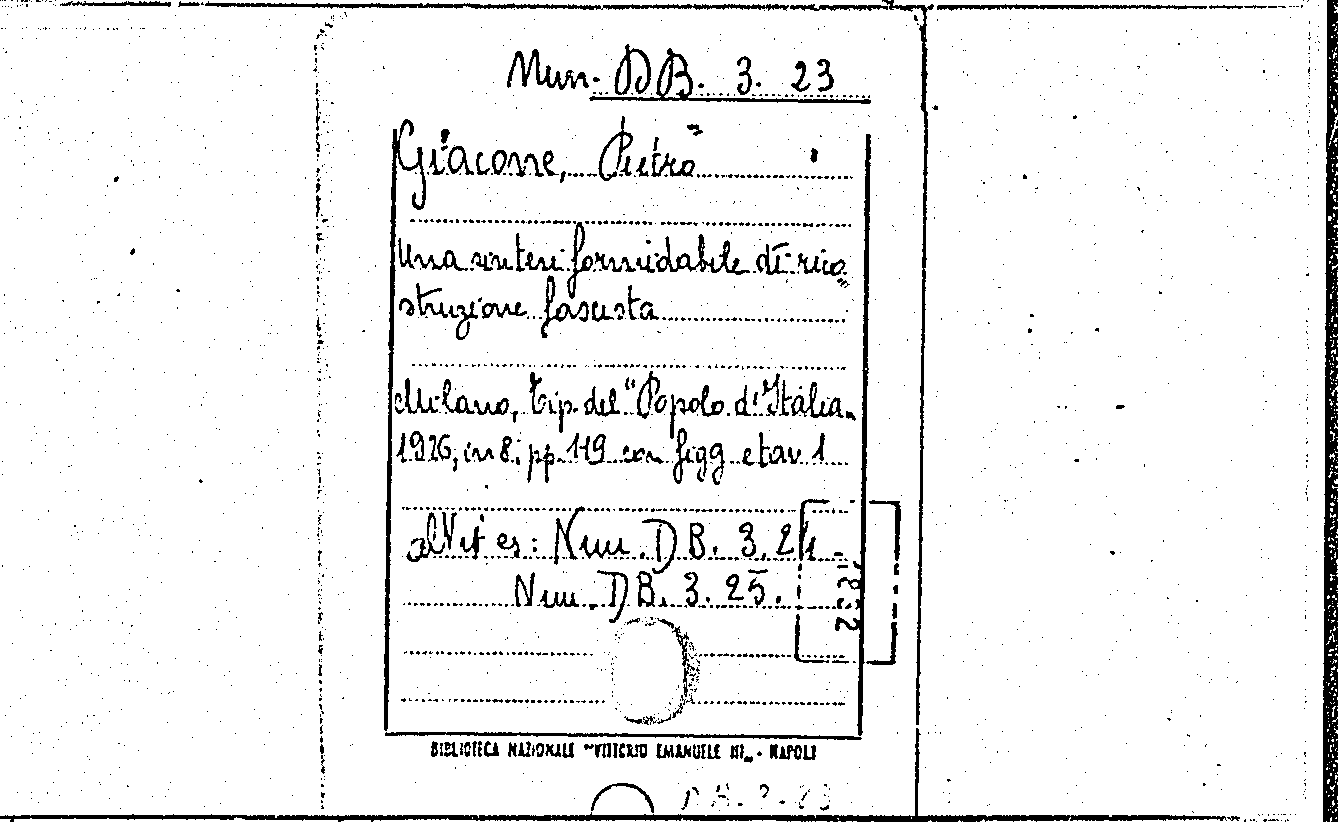 Mun. DB. 3. 23
Giacone, Pietro
Una sintesi formidabile di rico„
struzione fascista
Milano, Tip. del "Popolo d'Italia„
1926, in 8. pp. 119 con figg e tav 1
altri es: Num. DB. 3. 24 -
Num. DB. 3. 25.
BIBLIOTECA NAZIONALE "VITTORIO EMANUELE III„ - NAPOLI